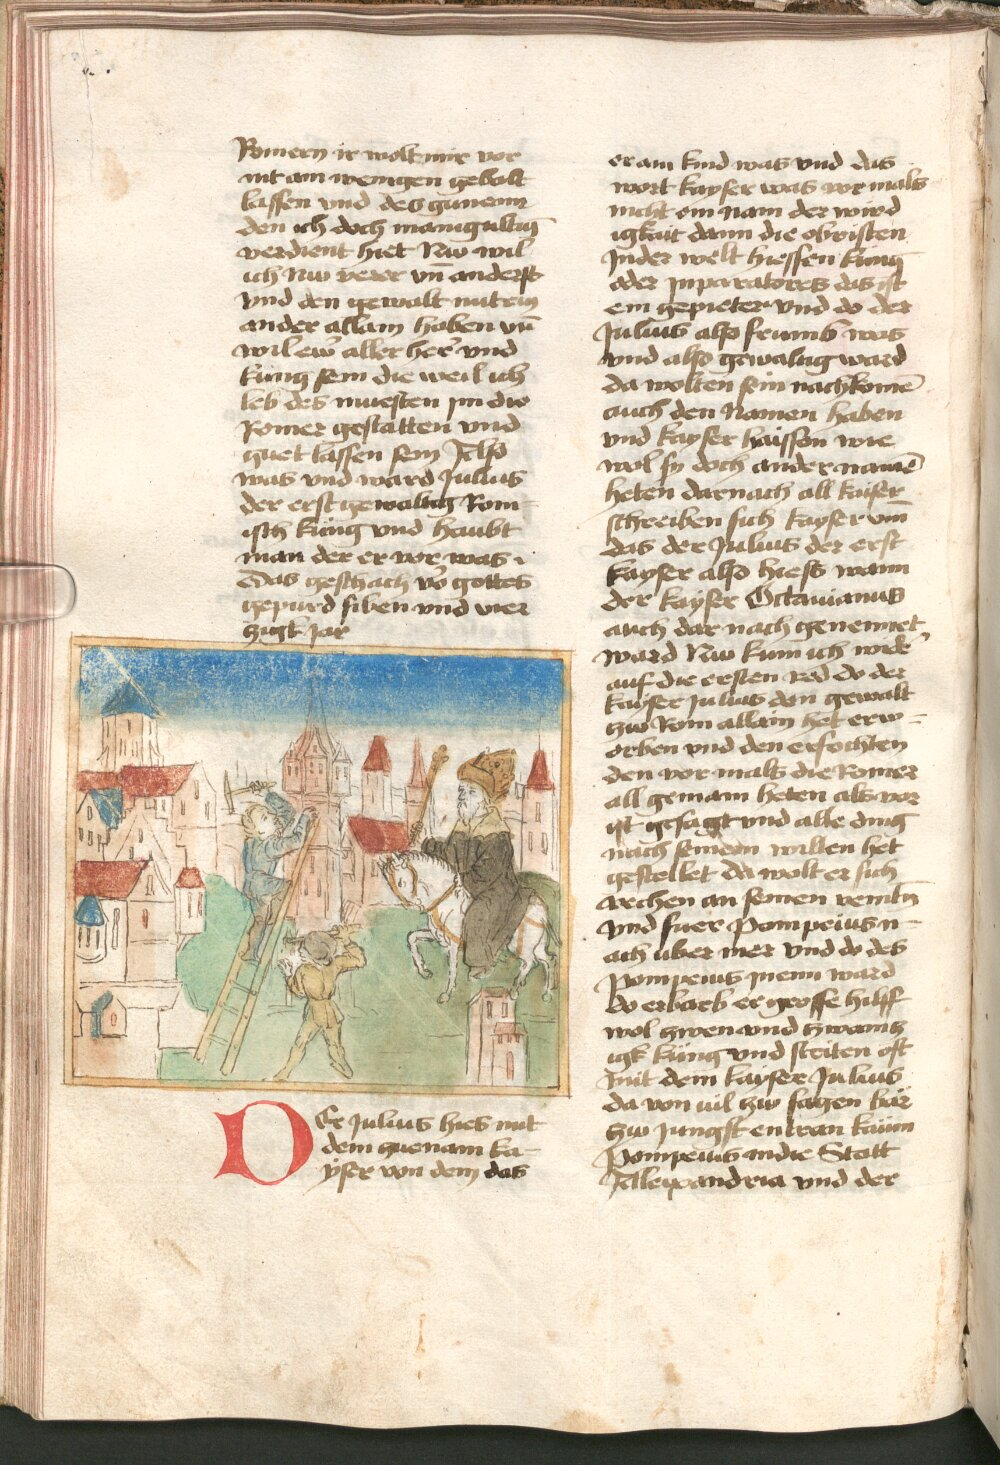 Romern ir wolt mir vor
nit ain wenigen gebalt
lassen vnd des gunenn
den ich doch manigultig
verdient hiet Nw wil
ich Nw verer vn̄ anderst
vnd den gewalt mit ein
ander allain haben vn̄
wil ew̓ aller her̓ vnd
kung sein die weil ich
leb des muesten im die
Romer gestatten vnd
guet lassen sein Also
was vnd ward Julius
der erst gewaltig Rom
isch kung vnd haubt
man der er vor was
Das geschach vo᷑ gottes
gepurd siben vnd vier
tzigk Jar
DEr Julius hies mit
dem zuenam ka
yser von dem das
er ain kind was vnd das
wort kayser was vor mals
nicht ein nam der wird
igkait dann die obristen
Jnder welt hiessen kung
oder Jnparatores das ist
ein gepieter vnd do der
Julius also frumb was
vnd also gewaltig ward
da wolten sein nachkome̅
auch den Namen haben
vnd kayser haissen wie
wol sy doch ander name̅
heten darnach all kaiser
schreiben sich kayser vm̅
das der Julius der erst
kayser also hiess wann
der kayser Octauianus
auch dar nach genennet
ward Nw kum ich wide᷑
auf die ersten red do der
kayser Julius den gewalt
zw Rom allain het erw=
orben vnd den erfochten
den vor mals die Romer
all gemain heten als vor
ist gesagt vnd alle ding
nach seinem willen het
gestellet da wolt er sich
rechen an seinen veintn̅
vnd fuer Pompeius n
ach uber mer vnd do des
Pompeius Jnenn ward
do erbarb er grosse hilff
wol zwen vnd tzwaintz
igk kung vnd striten oft
mit dem kayser Julius
da von uil zw sagen bar̓
zw Jungst entran kaum
Pompeius in die Statt
Allexandria vnd der